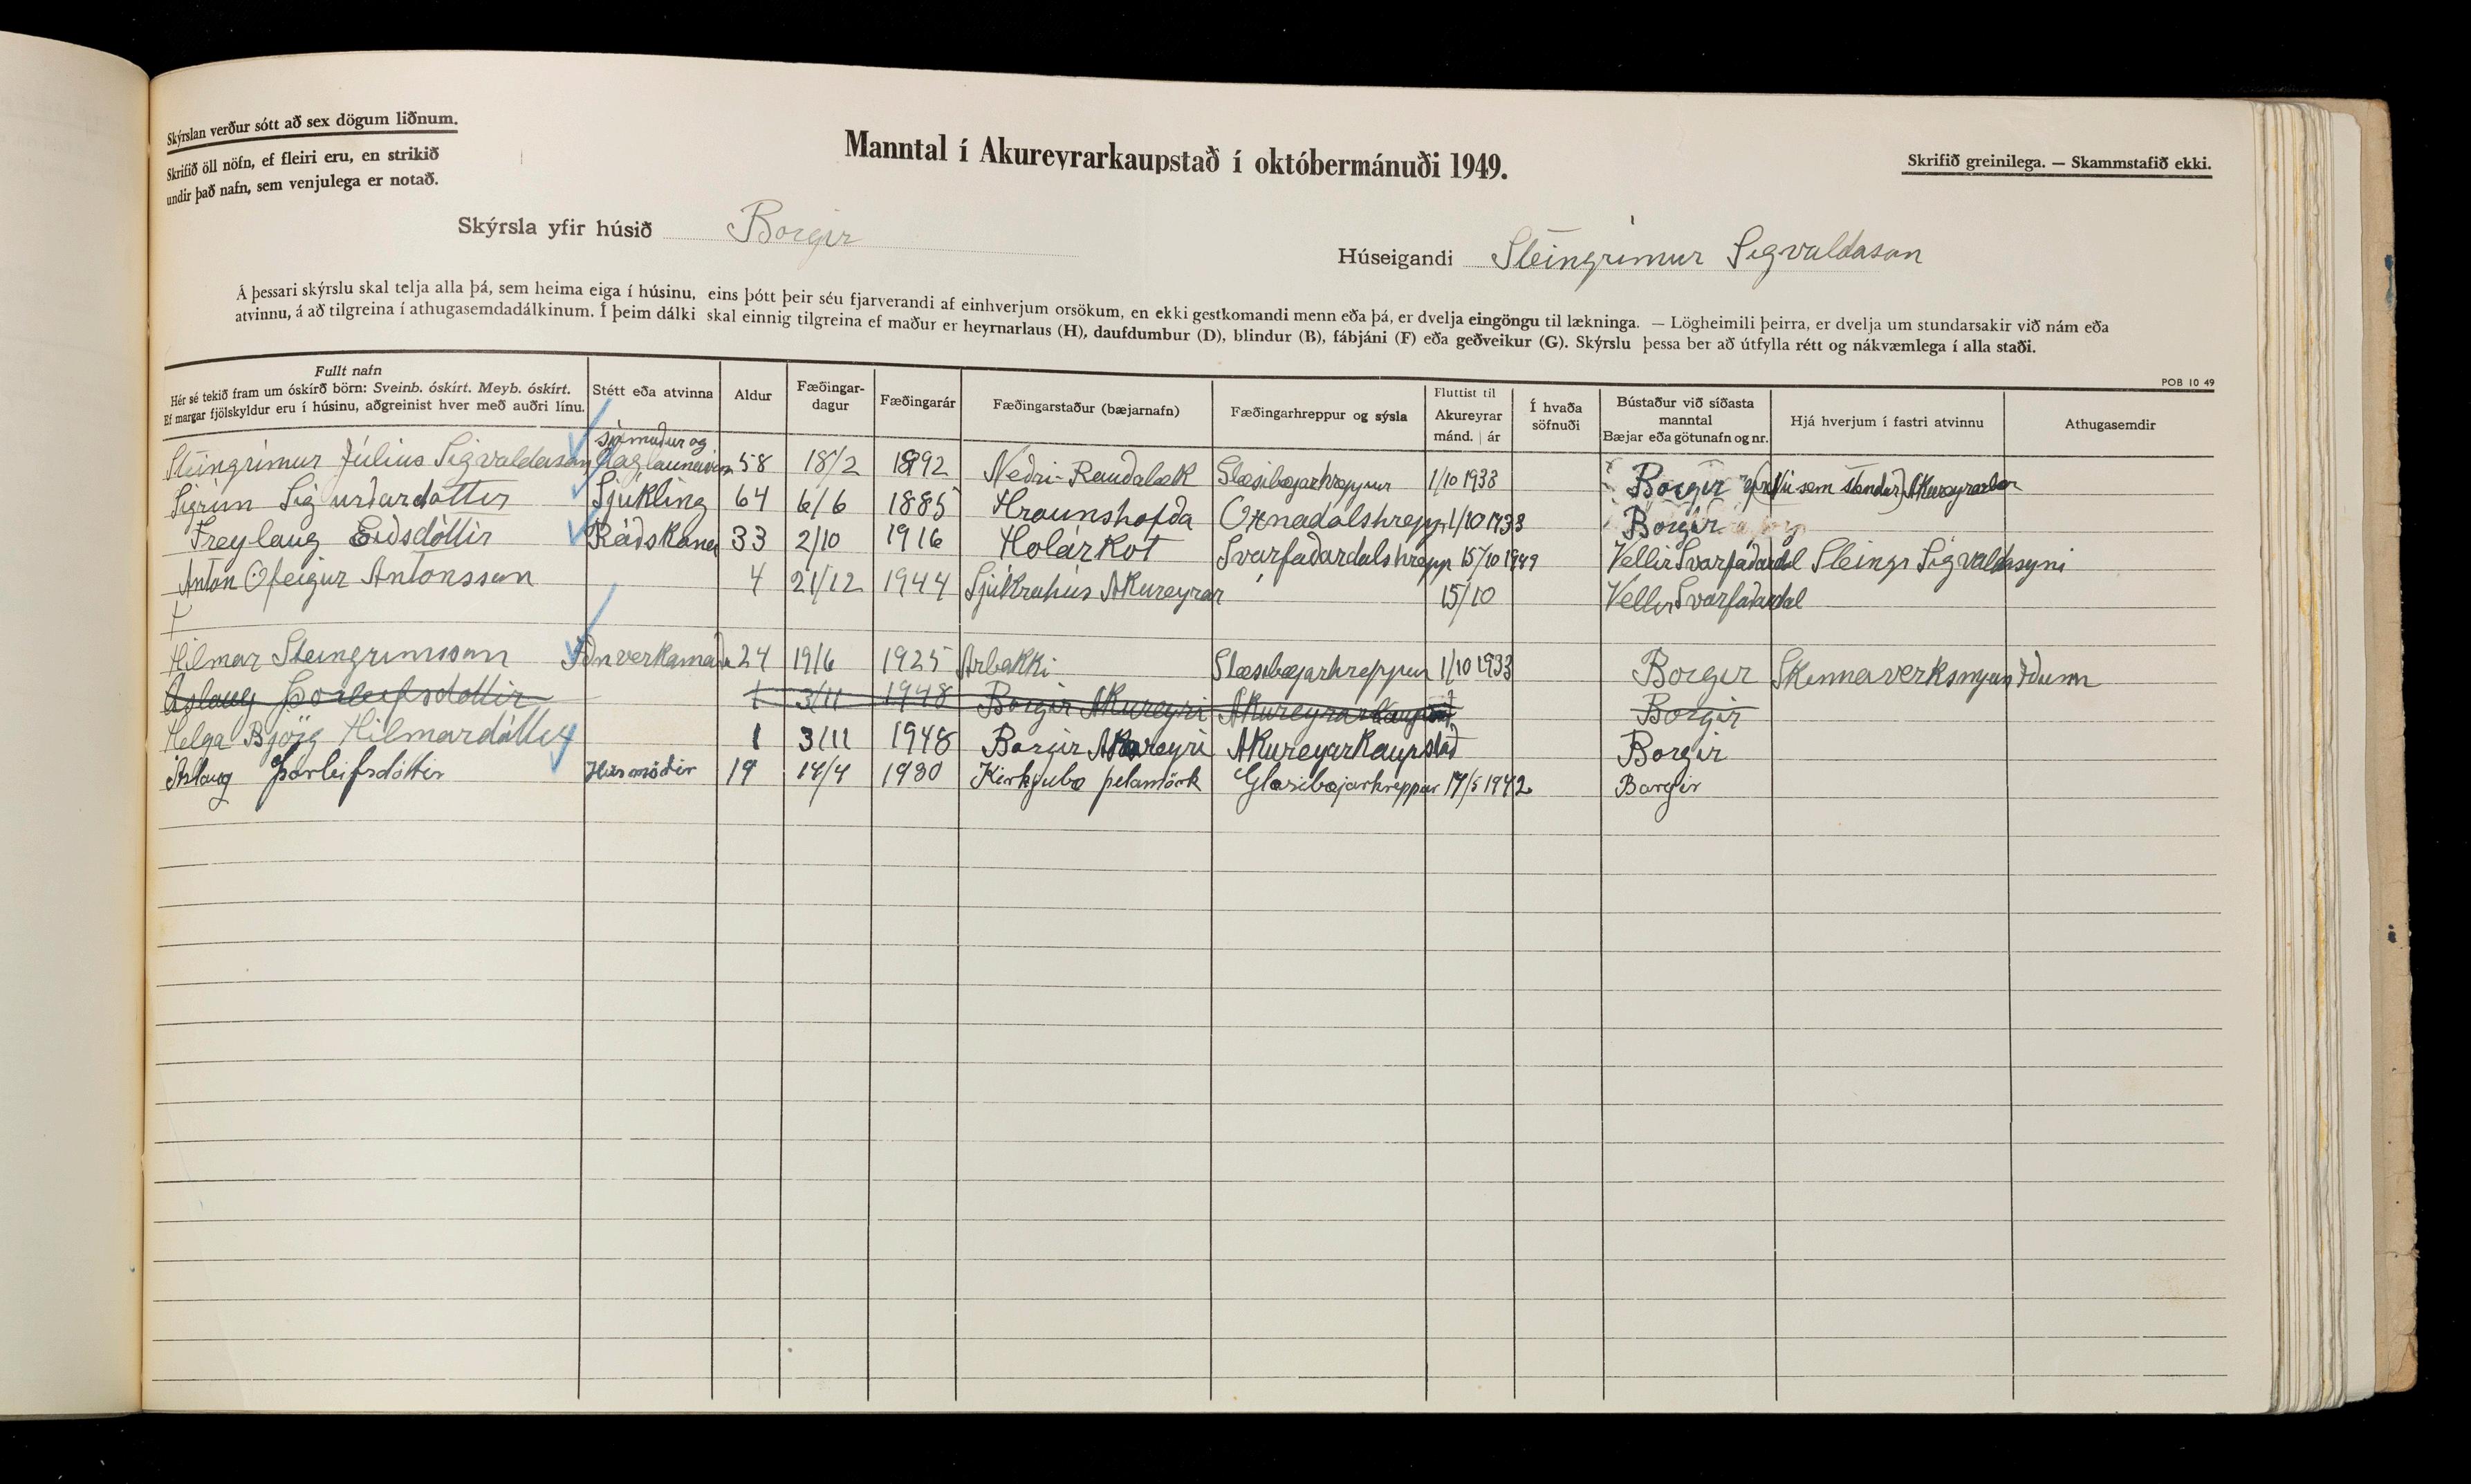 Skýrslan verður sótt að sex dögum liðnum.
Skrifið öll nöfn, ef fleiri eru, en strikið
undir það nafn, sem venjulega er notað.
Manntal í Akureyrarkaupstað í októbermánuði 1949.
Skrifið greinilega. — Skammstafið ekki.
Skýrsla yfir húsið Borgir
Húseigandi Steingrímur Sigvaldason
Á þessari skýrslu skal telja alla þá, sem heima eiga í húsinu, eins þótt þeir séu fjarverandi af einhverjum orsökum, en ekki gestkomandi menn eða þá, er dvelja eingöngu til lækninga. — Lögheimili þeirra, er dvelja um stundarsakir við nám eða
atvinnu, á að tilgreina í athugasemdadálkinum. Í þeim dálki skal einnig tilgreina ef maður er heyrnarlaus (H), daufdumbur (D), blindur (B), fábjáni (F) eða geðveikur (G). Skýrslu þessa ber að útfylla rétt og nákvæmlega í alla staði.
POB 10 49
Fullt nafn
Hér sé tekið fram um óskírð börn: Sveinb. óskírt. Meyb. óskírt.
Ef margar fjölskyldur eru í húsinu, aðgreinist hver með auðri línu.
Stétt eða atvinna
Aldur
Fæðingar-
dagur
Fæðingarár
Fæðingarstaður (bæjarnafn)
Fæðingarhreppur og sýsla
Fluttist til
Akureyrar
mánd. ár
Í hvaða
söfnuði
Bústaður við síðasta
manntal
Bæjar eða götunafn og nr.
Hjá hverjum í fastri atvinnu
Athugasemdir
Steingrímur Júlíus Sigvaldason sjómaður og 58 18/2 1892 Neðri-Rauðalæk Glæsibæjarhreppur 1/10 1933 Borgir Nú sem stendur Akureyrarbær
Sigrún Sigurðardóttir Sjúkling 64 6/6 1885 Hraunshofða Öxnadalshrepp 1/10 1933 Borgir
Freylaug Eiðsdóttir Ráðskona 33 2/10 1916 Holárkot Svarfaðardalshrepp 15/10 1949 Vellir Svarfaðardal Steingr Sigvaldasyni
Anton Ofeigur Antonsson 4 21/12 1944 Sjúkrahús Akureyrar 15/10 Vellir Svarfaðardal
Hilmar Steingrímsson Iðnverkamað 24 19/6 1925 Árbakki Glæsibæjarhreppur 1/10 1933 Borgir Skinnaverksmjan Iðunn
Áslaug Þorleifsdóttir 1 3/11 1948 Borgir Akureyri Akureyrarkaupstað Borgir
Helga Björg Hilmardóttir 1 3/11 1948 Borgir Akureyri Akureyarkaupstað Borgir
Áslaug Þorleifsdóttir Húsmóðir 19 14/4 1930 Kirkjubo þelamörk Glæsibæjarhreppur 14/5 1942 Borgir